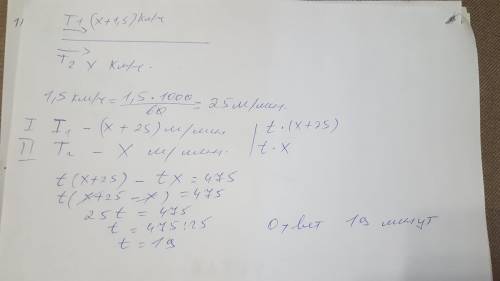 1)
T1 (x+1,5) км/ч
T2 x км/ч.
1,5 км/ч = 1,5 · 1000 / 60 = 25 м/мин.
I T1 – (x + 25) м/мин | t · (x+25)
II T2 – x м/мин. | t · x
t(x+25) – tx = 475
t(x+25 – x) = 475
25t = 475
t = 475:25
t = 19
Ответ 19 минут